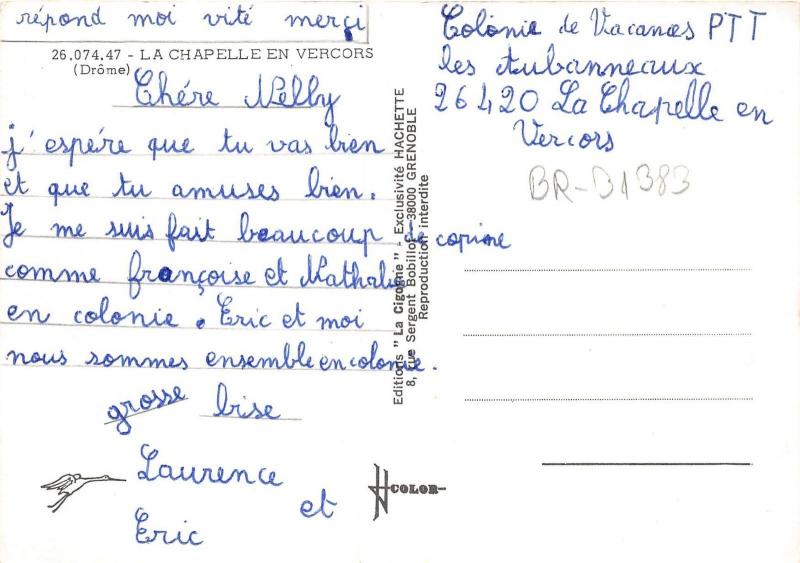 répond moi vité merçi
26.074.47 - LA CHAPELLE EN VERCORS
(Drôme)
Chére Nelly
j'espére que tu vas bien
et que tu amuses bien.
Je me suis fait beaucoup de copine
comme françoise et Nathalie
en colonie. Eric et moi
nous sommes ensemble en colonie.
grosse bise
Laurence
et
Eric
Editions "La Cigogne" - Exclusivité HACHETTE
8, Rue Sergent Bobillot - 38000 GRENOBLE
Reproduction interdite
COLOR
Colonie de Vacances PTT
les Aubanneaux
26420 La Chapelle en
Vercors
BR-D1383